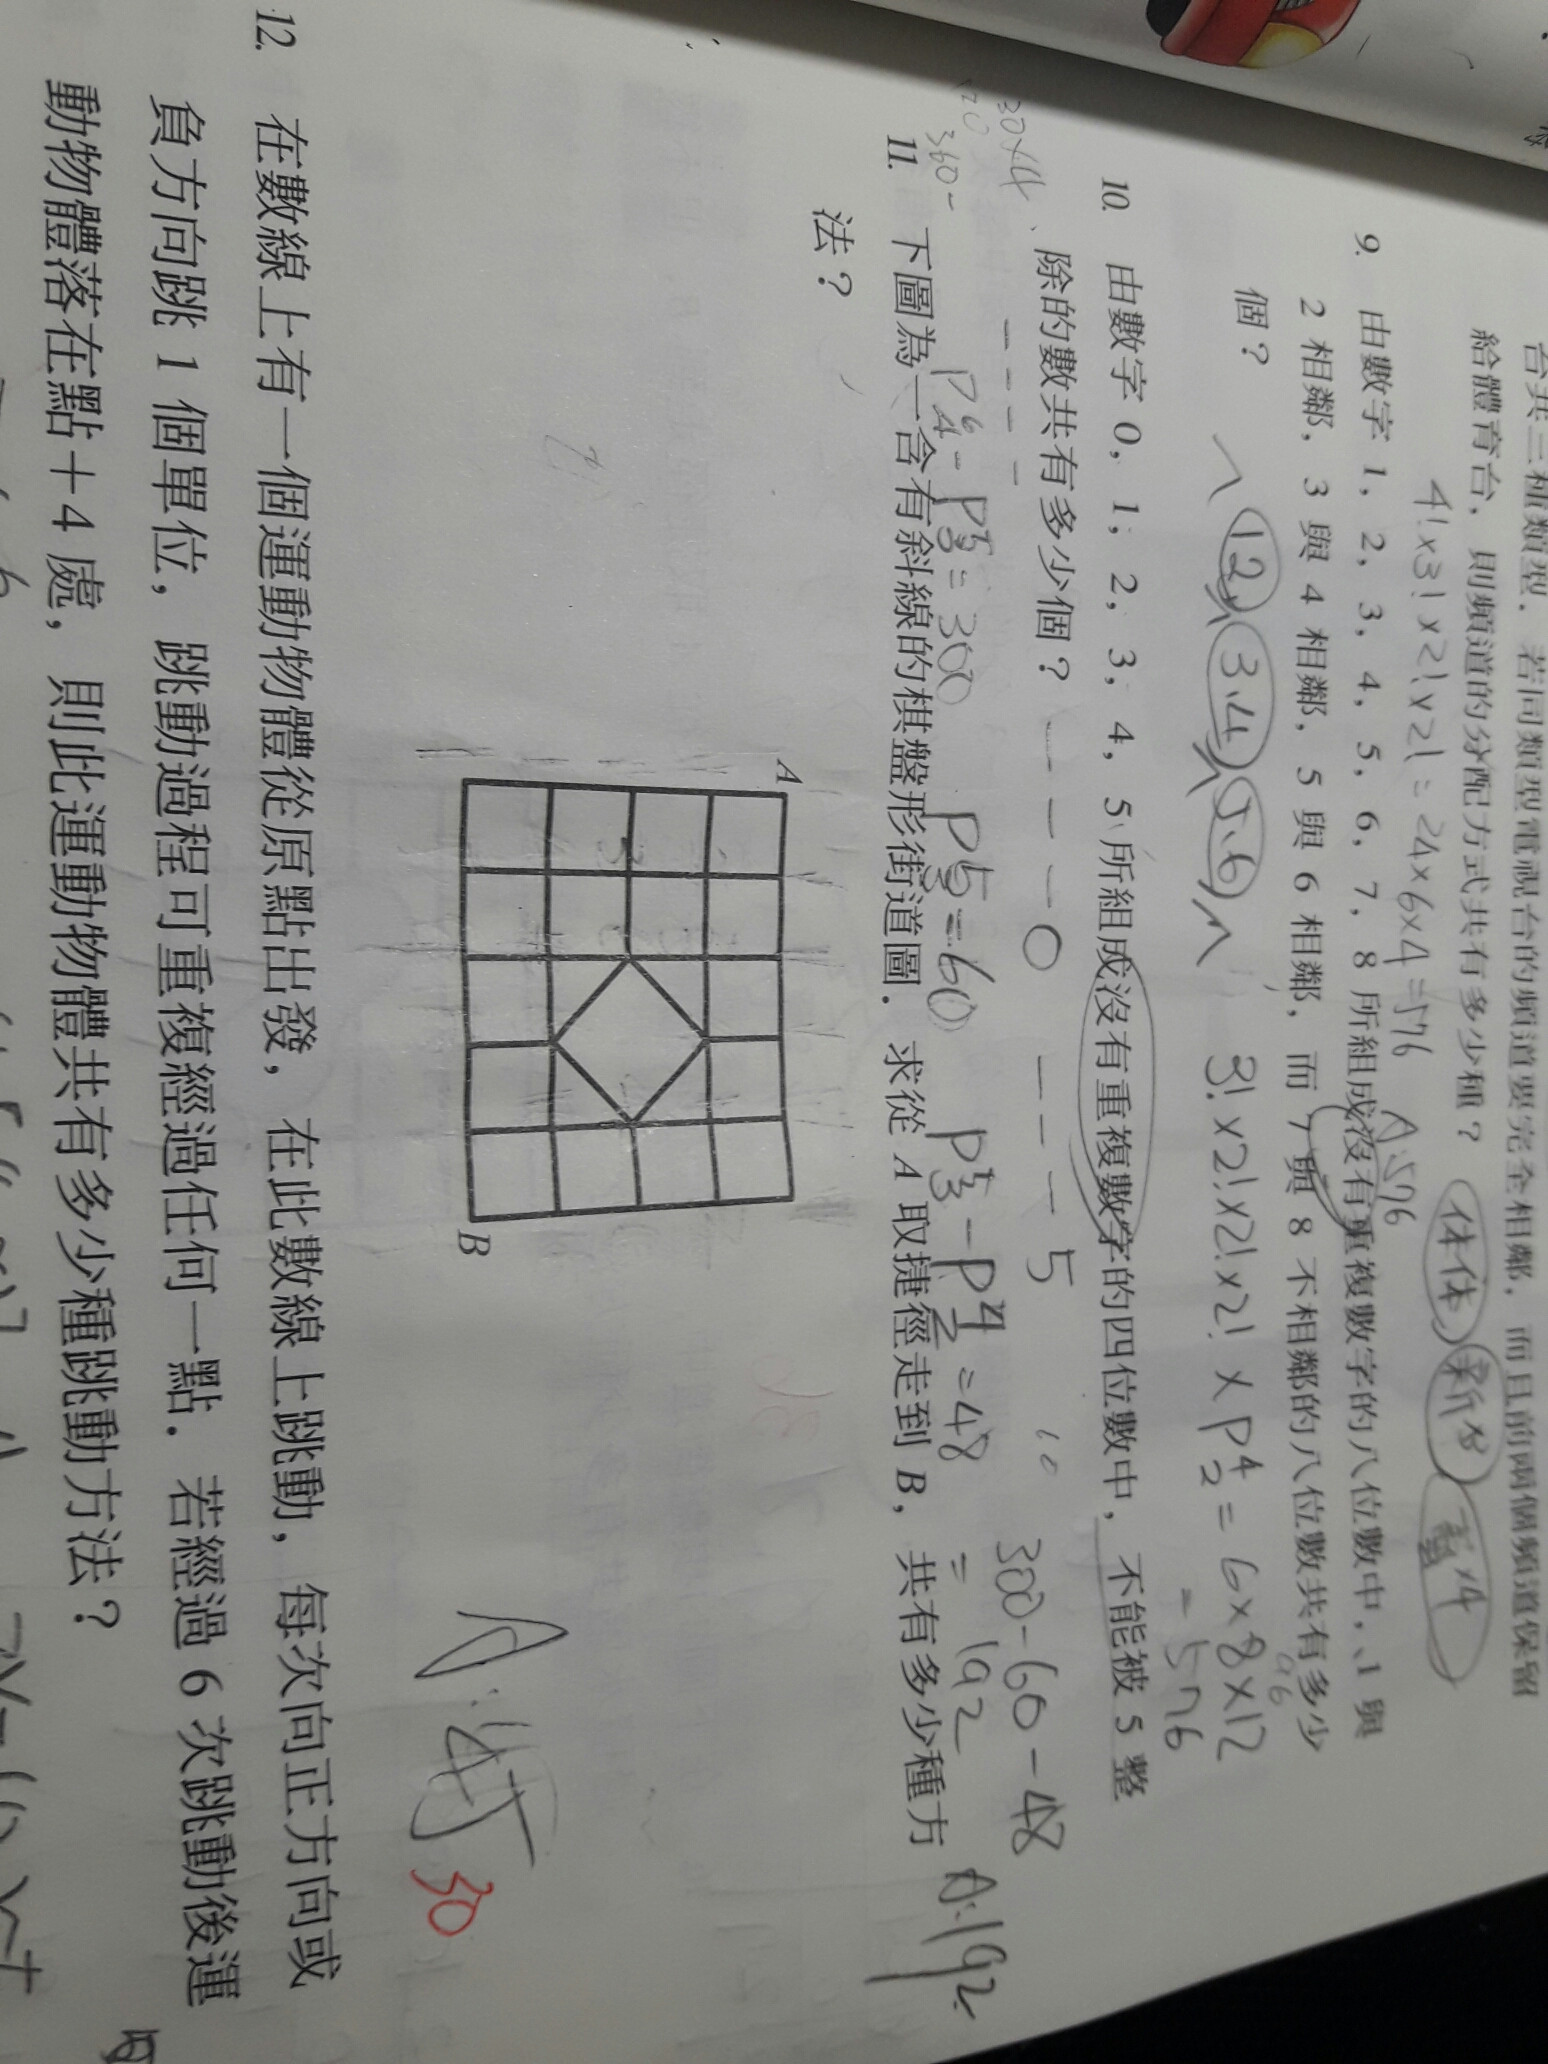 台共三種類型．若同類型電視台的頻道要完全相鄰，而且前兩個頻道保留
給體育台，則頻道的分配方式共有多少種？
4!×3!×2!×2! = 24×6×4=576
A:576
9. 由數字 1，2，3，4，5，6，7，8 所組成沒有重複數字的八位數中，1 與
2 相鄰，3 與 4 相鄰，5 與 6 相鄰，而 7 與 8 不相鄰的八位數共有多少
個？
12 3.4 5.6 3!×2!×2!×2!×P⁴₂=6×8×12
96
=576
10. 由數字 0，1，2，3，4，5 所組成沒有重複數字的四位數中，不能被 5 整
除的數共有多少個？
0
5
300-60-48
=192
P⁶₄-P⁵₃=300 P⁵₃=60 P⁵₃-P⁴₂=48
A:192
30×4
360-
11. 下圖為一含有斜線的棋盤形街道圖．求從 A 取捷徑走到 B，共有多少種方
法？
A
B
30
12. 在數線上有一個運動物體從原點出發，在此數線上跳動，每次向正方向或
負方向跳 1 個單位，跳動過程可重複經過任何一點．若經過 6 次跳動後運
動物體落在點＋4 處，則此運動物體共有多少種跳動方法？